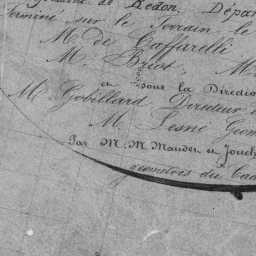 de Redon, Dépar
Terminé sur le Terrain le
M. de Caffarelli
M. Brest, M
et sous la Direction
M. Gobillard Directeur
M. Lesné Géom
Par M. M. Mauden et Jouch
géomètres du Cad